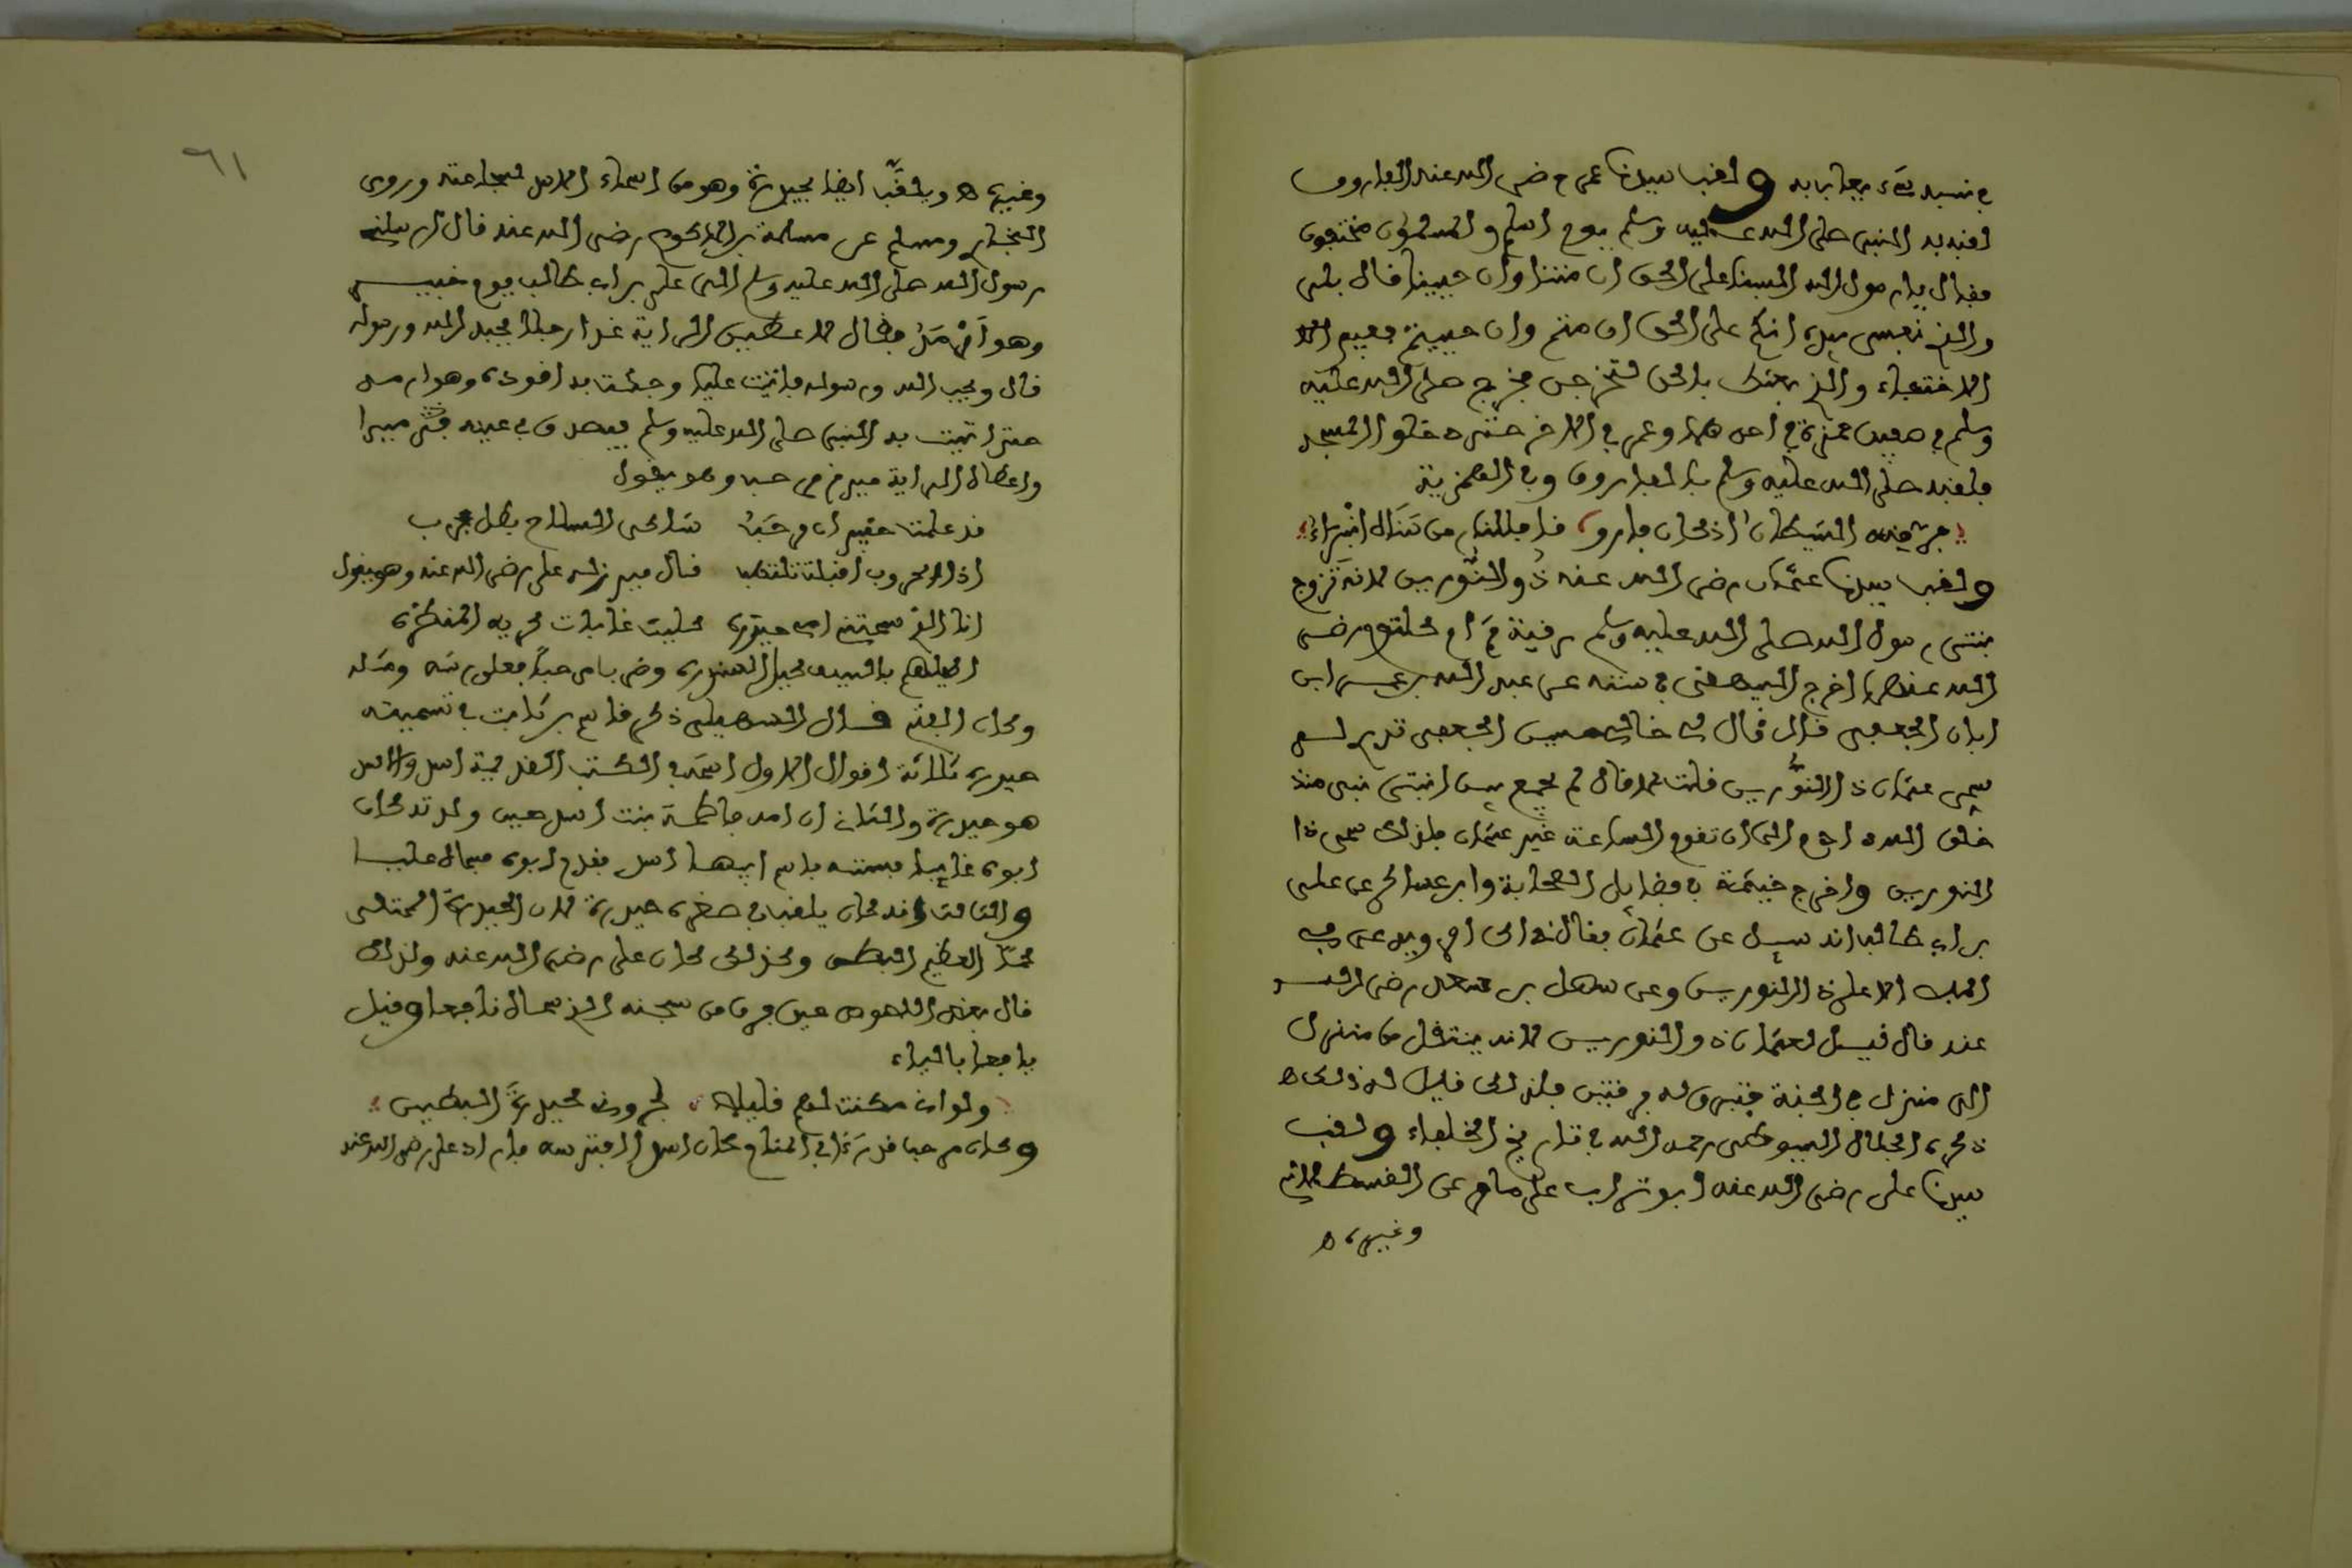 في نسبه شيء يعاب به ولقب سيدنا عمر رضي الله عنه الفاروق
لقبه به النبي صلى الله عليه وسلم يوم اسلم والمسلمون مختفون
فقال يا رسول الله السنا على الحق ان متنا وان حيينا قال بلى
والذي نفسي بيده انكم على الحق ان متم وان حييتم ففيم
الاختفاء والذي بعثك بالحق لتخرجن فخرج صلى الله عليه
وسلم في صفين حمزة في احدهما وعمر في الاخر حتى دخلوا المسجد
فلقبه صلى الله عليه وسلم بالفاروق وفي الهمزية
فر منه الشيطان اذ كان فاروقا فللنار من سناه انبراء
ولقب سيدنا عثمان رضي الله عنه ذو النورين لانه تزوج
بنتي رسول الله صلى الله عليه وسلم رقية ثم ام كلثوم رضي
الله عنهما اخرج البيهقي في سننه عن عبد الله بن عمر ابن
ابان الجعفي قال قال لي خالي حسين الجعفي تدري لم
سمي عثمان ذا النورين قلت لا قال لم يجمع بين ابنتي نبي منذ
خلق الله ادم الى ان تقوم الساعة غير عثمان فلذلك سمي ذا
النورين واخرج خيثمة في فضايل الصحابة وابن عساكر عن علي
بن ابي طالب انه سيل عن عثمان فقال ذاك امرؤ يدعى في
الملا الاعلى ذا النورين وعن سهل بن سعد رضي الله
عنه قال قيل لعثمان ذو النورين لانه ينتقل من منزل
الى منزل في الجنة فتبرق له برقتين فلذلك قيل له ذلك ه
ذكره الجلال السيوطي رحمه الله في تاريخ الخلفاء ولقب
سيدنا علي رضي الله عنه ابو تراب على ما مر عن القسطلاني
وغيره ه
٦١
وغيره ه ويلقب ايضا بحيدرة وهو من اسماء الاسد لشجاعته وروى
البخاري ومسلم عن سلمة بن الاكوع رضي الله عنه قال ارسلني
رسول الله صلى الله عليه وسلم الى علي بن ابي طالب يوم خيبر
وهو ارمد فقال لاعطين الراية غدا رجلا يحب الله ورسوله
قال ويحبه الله ورسوله فاتيت عليا وجئت به اقوده وهو ارمد
حتى اتيت به النبي صلى الله عليه وسلم فبصق في عينه فبرئ
واعطاه الراية فبرز مرحب وهو يقول
قد علمت خيبر اني مرحب شاكي السلاح بطل مجرب
اذا الحروب اقبلت تلتهب قال فبرز له علي رضي الله عنه وهو يقول
انا الذي سمتني امي حيدره كليث غابات كريه المنظره
اكيلهم بالسيف كيل السندره وضرب مرحبا ففلق راسه وقتله
وكان الفتح قال السهيلي ذكر قاسم بن ثابت في تسميته
حيدرة ثلاثة اقوال الاول اسمه في الكتب القديمة اسد والاسد
هو حيدرة والثاني ان امه فاطمة بنت اسد حين ولدته كان
ابوه غايبا فسمته باسم ابيها اسد فقدم ابوه فسماه عليا
والثالث انه كان يلقب في صغره حيدرة لان الحيدرة الممتلي
لحما العظيم البطن وكذلك كان علي رضي الله عنه ولذلك
قال بعض اللصوص حين فر من سجنه الذي سماه نافعا وقيل
يافعا بالياء
ولو اني مكثت لهم قليلا لجروني لحيدرة البطين
وكان مرحب قد رءا في المنام كان اسدا افترسه فاراد علي رضي الله عنه